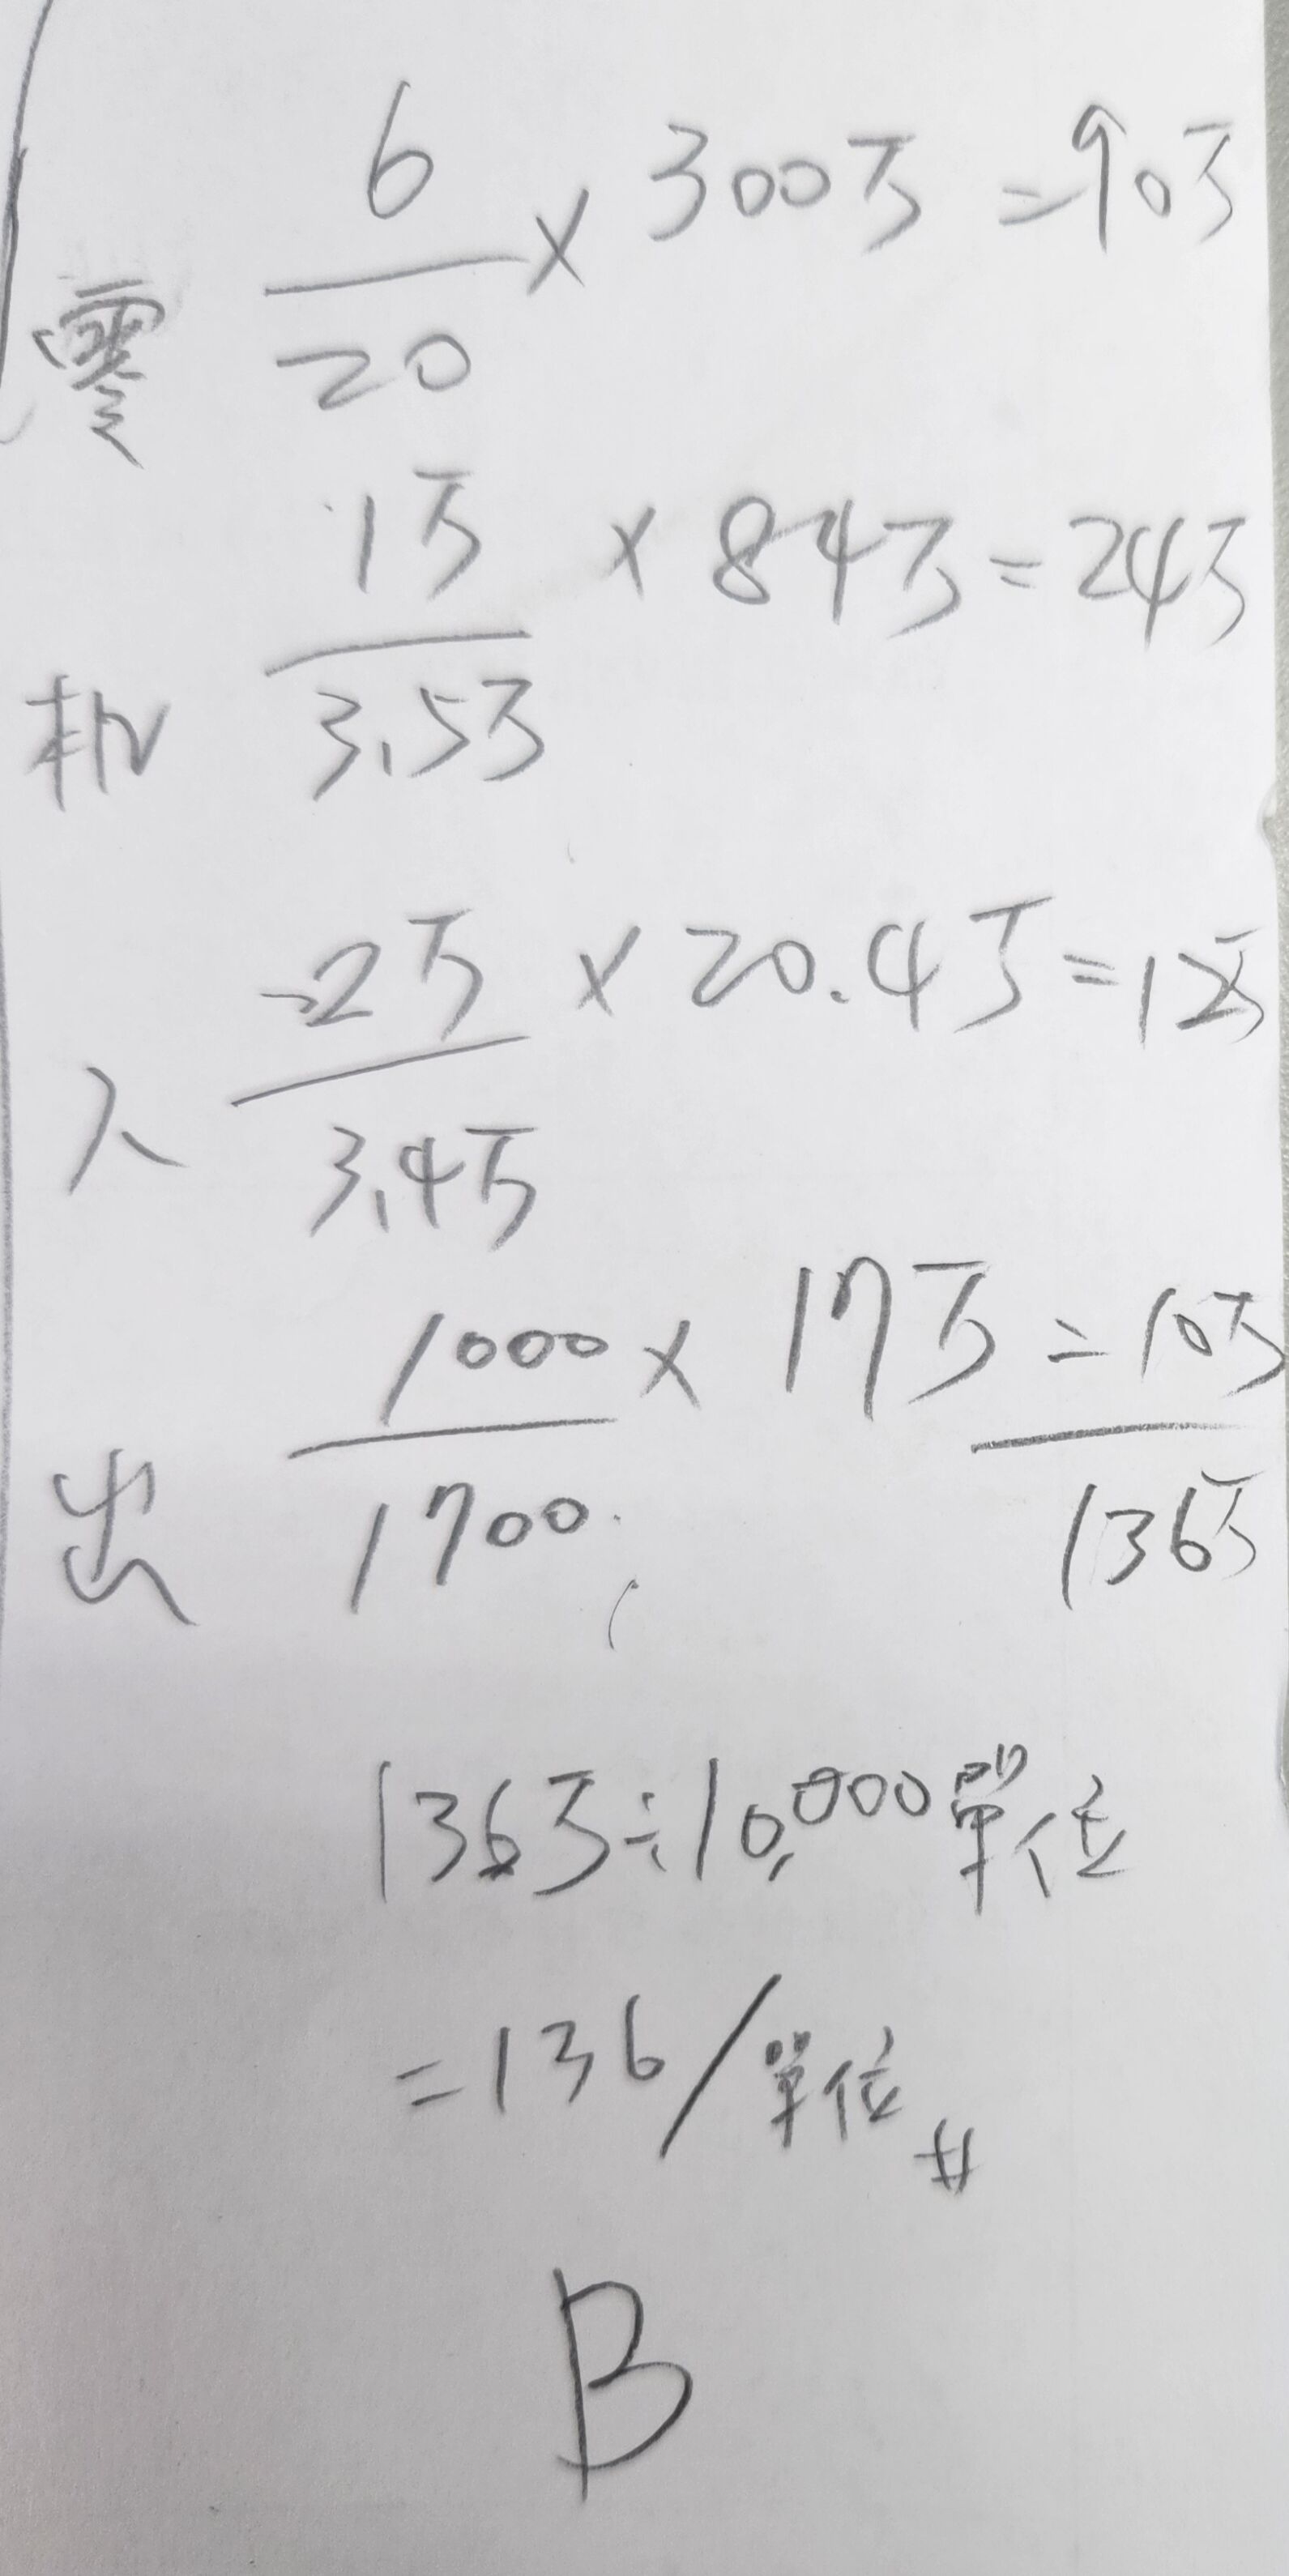 零 6/20 × 300万 = 90万
机 1万/3.5万 × 84万 = 24万
入 2万/3.4万 × 20.4万 = 12万
出 1000/1700 × 17万 = 10万
136万
136万÷10,000單位
=136/單位
B